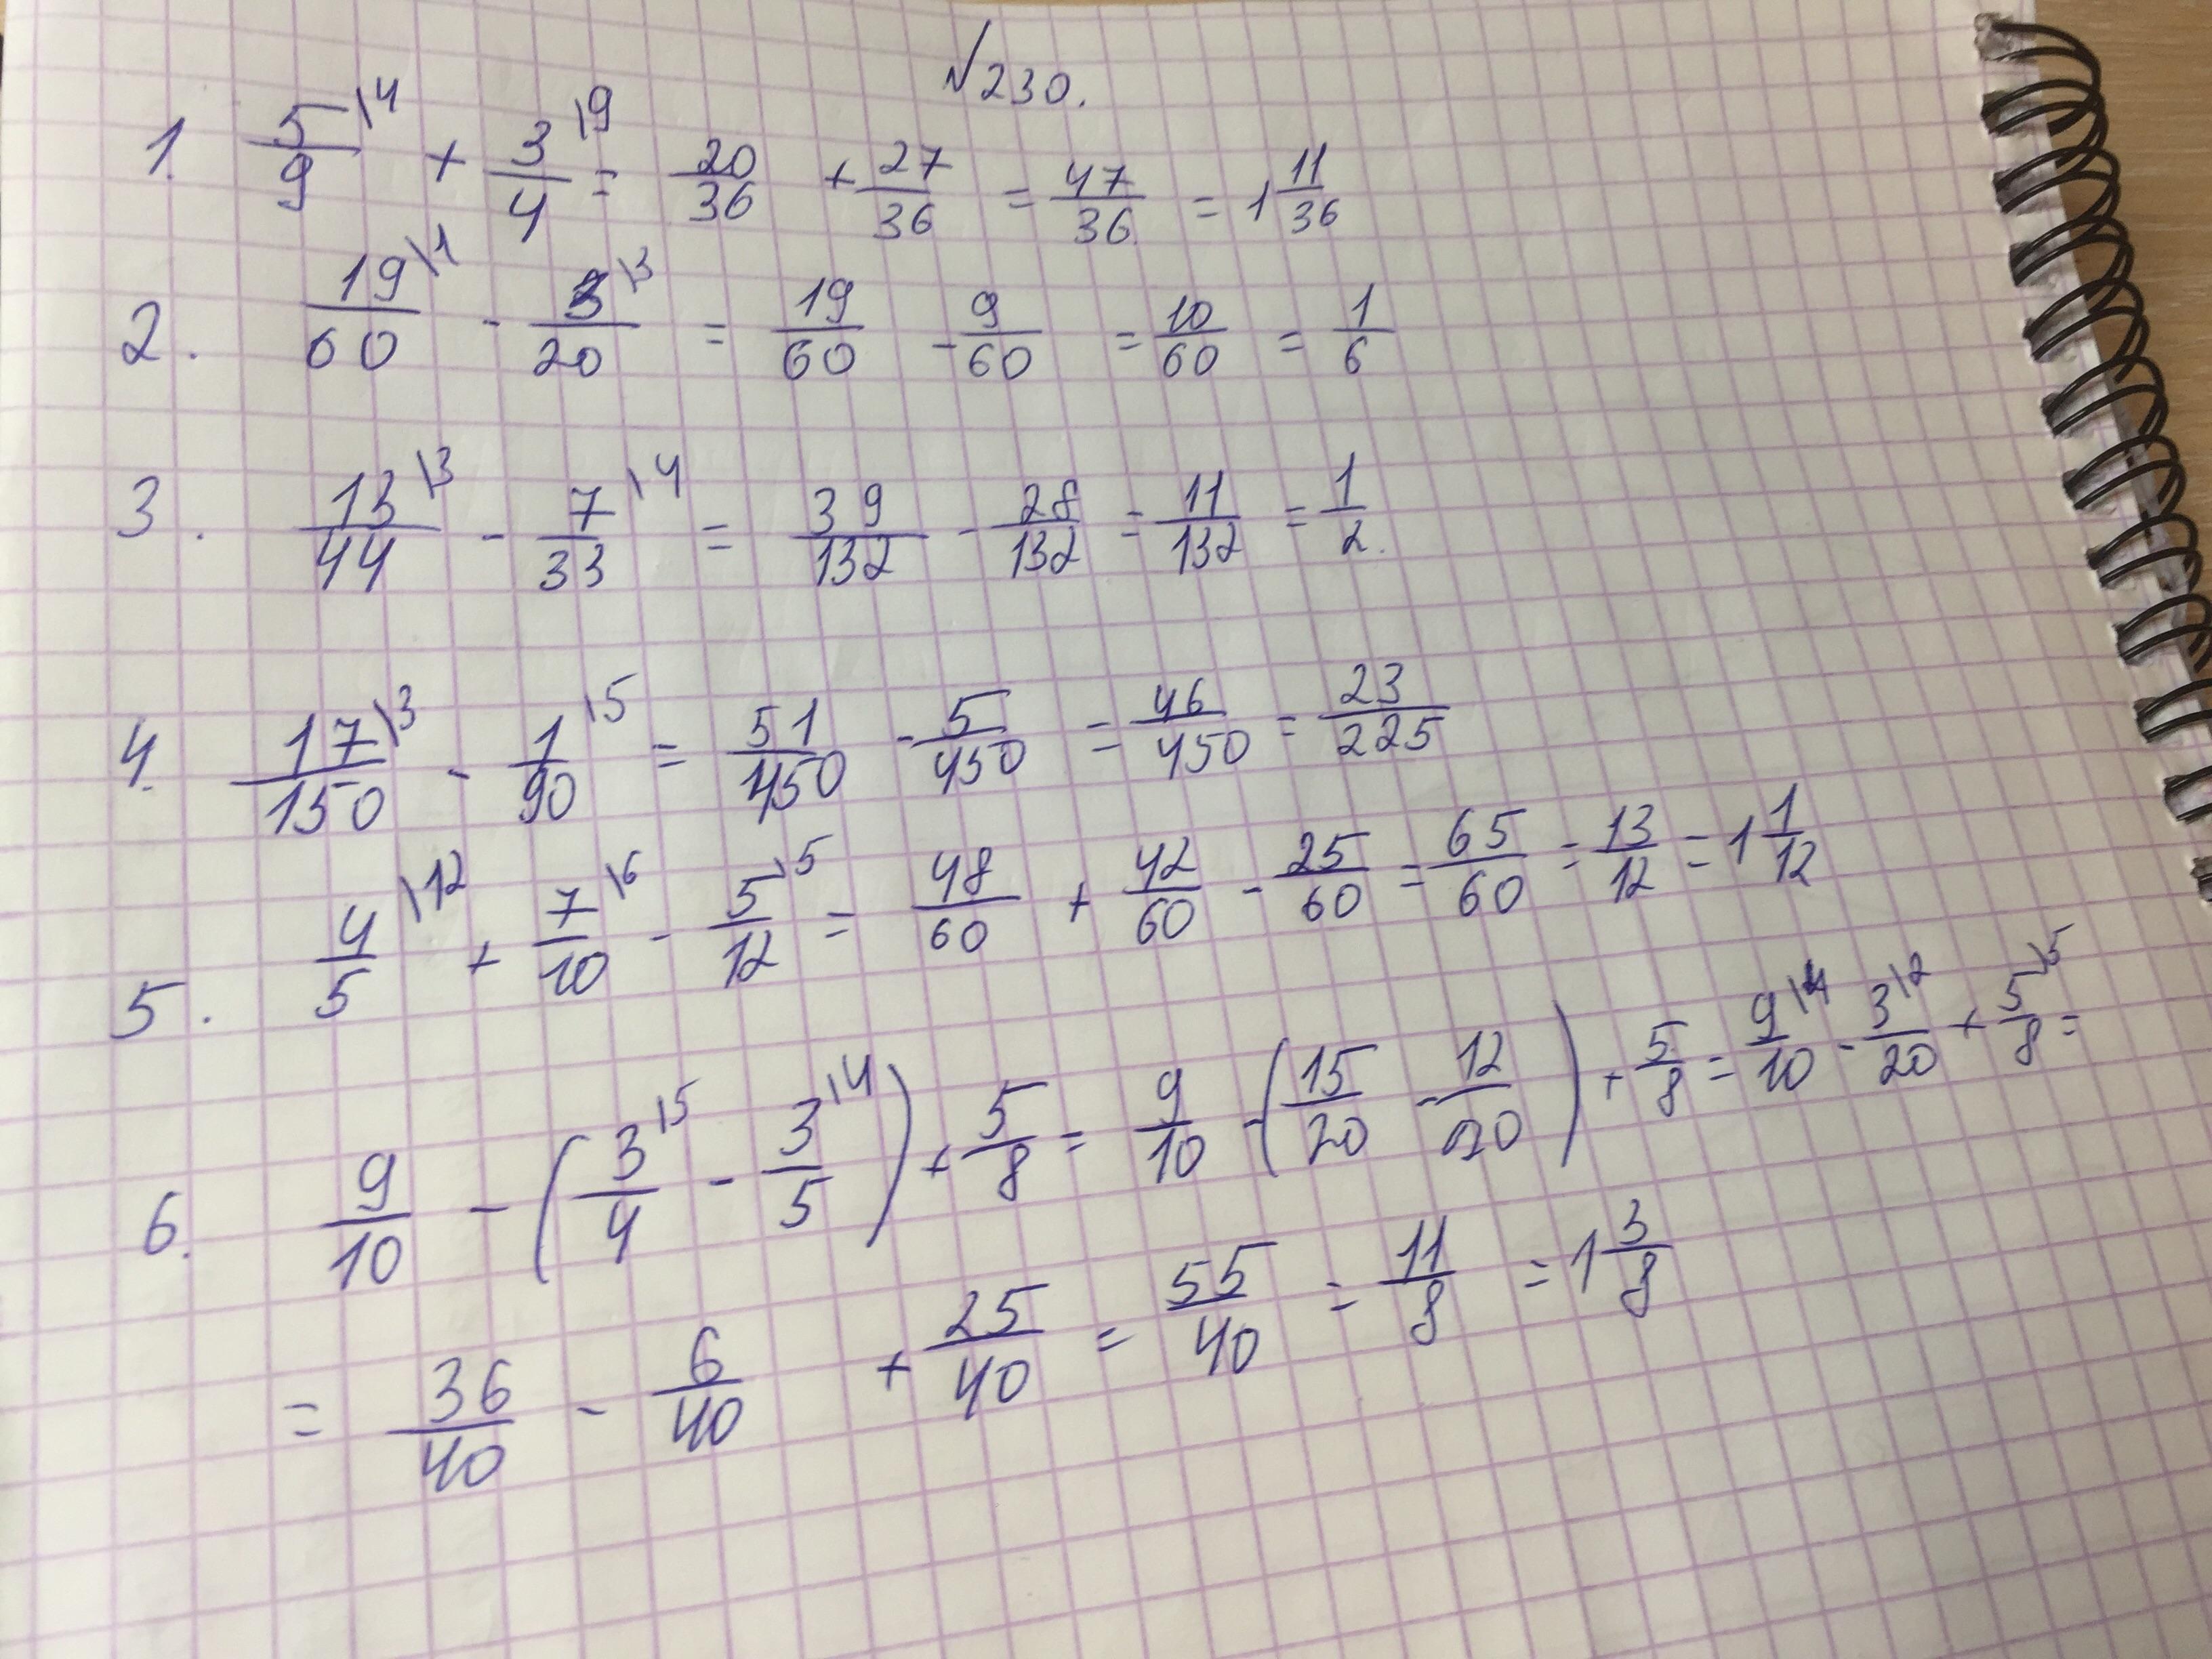 №230.
1. 5/9\4 + 3/4\9 = 20/36 + 27/36 = 47/36 = 1 11/36
2. 19/60\1 - 3/20\3 = 19/60 - 9/60 = 10/60 = 1/6
3. 13/44\3 - 7/33\4 = 39/132 - 28/132 = 11/132 = 1/2.
4. 17/150\3 - 1/90\5 = 51/450 - 5/450 = 46/450 = 23/225
5. 4/5\12 + 7/10\6 - 5/12\5 = 48/60 + 42/60 - 25/60 = 65/60 = 13/12 = 1 1/12
6. 9/10 - (3/4\5 - 3/5\4) + 5/8 = 9/10 - (15/20 - 12/20) + 5/8 = 9/10\4 - 3/20\2 + 5/8\5 =
= 36/40 - 6/40 + 25/40 = 55/40 = 11/8 = 1 3/8